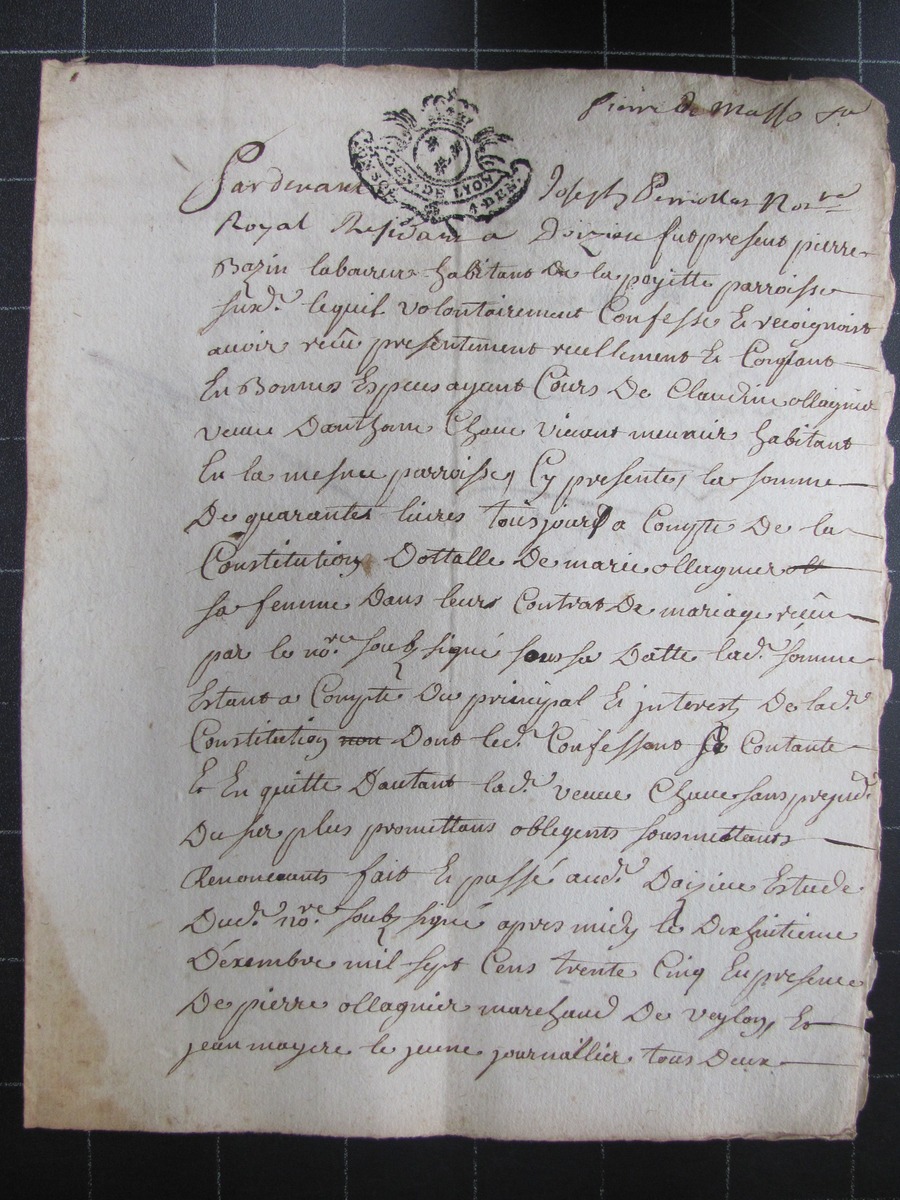 pierre de masso
GEN. DE LYON
4. DEN.
Pardevant Joseph Perrottas No.re
Royal Residant a Doizieu fut present pierre
Bazin laboureur habitant de la poyette parroisse
susd. lequel volontairement Confesse Et recoignoist
avoir reçu presentement reellement Et Comptant
En Bonnes Especes ayant Cours De Claudine ollagnier
veuve Danthome Chave vivant meunier habitant
En la mesme parroisse, Cy presente, la somme
De quarantes livres tousjours a Compte De la
Constitution Dottalle De marie ollagnier
sa femme Dans leurs Contrat De mariage reçeu
par le no.re soubsigné sous sa Datte lad. somme
Estant a Compte Du principal Et jnterest De lad.
Constitution non Dont led. Confessant se Contante
Et En quitte Dautant lad. veuve Chave sans prejud.
Du sur plus promettans obligents sousmettants
Renonceants fait Et passé aud. Doizieu Estude
Dud. no.re soubsigné apres midy le Dixhuitieme
Décembre mil sept Cens trente Cinq En presence
De pierre ollagnier marchand De veylon, Et
jean mayere le jeune journallier tous Deux